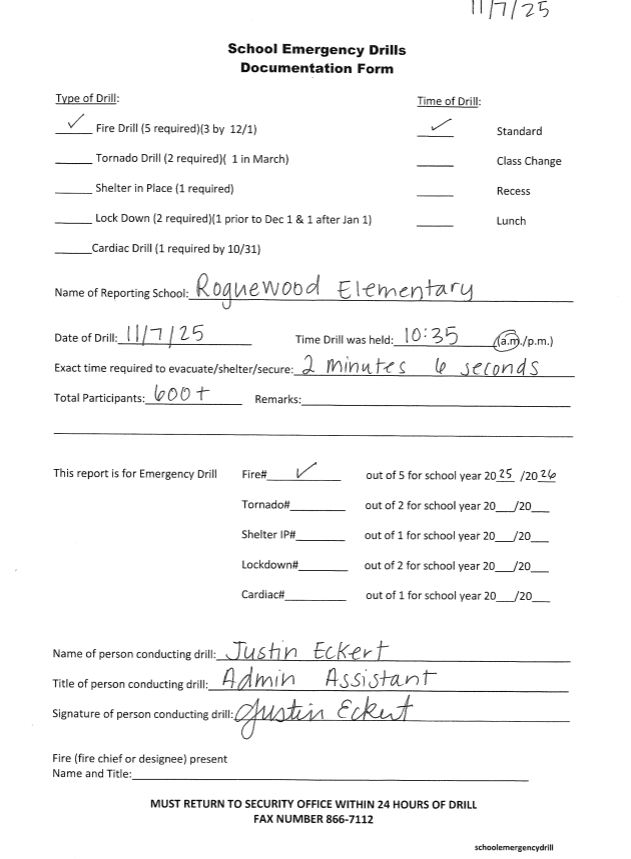 11/7/25
School Emergency Drills
Documentation Form
Type of Drill: Time of Drill:
✓ Fire Drill (5 required)(3 by 12/1) ✓ Standard
______ Tornado Drill (2 required)( 1 in March) ______ Class Change
______ Shelter in Place (1 required) ______ Recess
______ Lock Down (2 required)(1 prior to Dec 1 & 1 after Jan 1) ______ Lunch
______Cardiac Drill (1 required by 10/31)
Name of Reporting School: Roguewood Elementary
Date of Drill: 11/7/25 Time Drill was held: 10:35 (a.m./p.m.)
Exact time required to evacuate/shelter/secure: 2 minutes 6 seconds
Total Participants: 600+ Remarks:
This report is for Emergency Drill Fire# ✓ out of 5 for school year 2025/2026
Tornado#________ out of 2 for school year 20___/20___
Shelter IP#________ out of 1 for school year 20___/20___
Lockdown#________ out of 2 for school year 20___/20___
Cardiac#________ out of 1 for school year 20___/20___
Name of person conducting drill: Justin Eckert
Title of person conducting drill: Admin Assistant
Signature of person conducting drill: Justin Eckert
Fire (fire chief or designee) present
Name and Title:
MUST RETURN TO SECURITY OFFICE WITHIN 24 HOURS OF DRILL
FAX NUMBER 866-7112
schoolemergencydrill